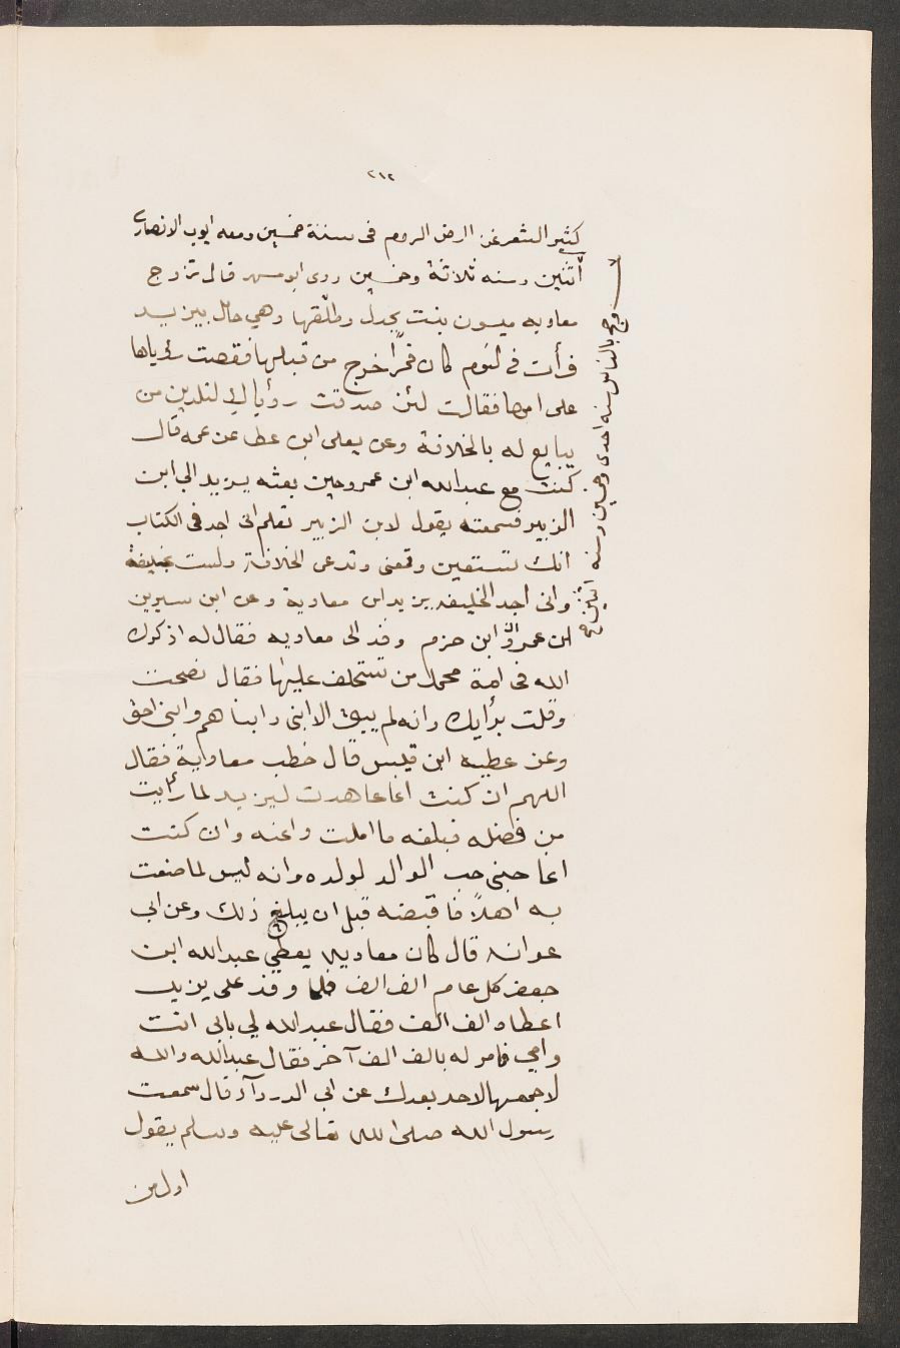 ٢١٢
كثير الشعر غزى ارض الروم فى سنة خمسين ومعه ايوب الانصارى
وحج بالناس سنه احدى وخمسين وسنه اثنين صح
اثنين وسنه ثلاثة وخمسين روى ابو مسهر قال تزوج
معاويه ميسون بنت بجدل وطلقها وهي حامل بيزيد
فرأت فى النوم كان قمرًا خرج من قبلها فقصت رؤياها
على امها فقالت لئن صدقت رؤياك لتلدين من
يبايع له بالخلافة وعن يعلى ابن عطا عن عمه قال
كنت مع عبدالله ابن عمرو حين بعثه يزيد الى ابن
الزبير فسمعته يقول لابن الزبير تعلم انى اجد فى الكتاب
انك تستعين وتعنى وتدعى الخلافة ولست بخليفة
وانى اجد الخليفه يزيد ابن معاوية وعن ابن سيرين
ان عمرو ابن حزم وفد الى معاويه فقال له اذكرك
الله فى امة محمد من تستخلف عليها فقال نصحت
وقلت برأيك وانه لم يبق الا ابنى وابناهم وابنى احق
وعن عطيه ابن قيس قال خطب معاوية فقال
اللهم ان كنت انما عاهدت ليزيد لما رأيت
من فضله فبلغه ما املت واعنه وان كنت
انما حبنى حب الوالد لولده وانه ليس لما صنعت
به اهلًا فاقبضه قبل ان يبلغ ذلك وعن ابى
عوانه قال كان معاويه يعطي عبدالله ابن
جعفر كل عام الف الف فلما وفد على يزيد
اعطاه الف الف فقال عبدالله لي بابى انت
وامي فامر له بالف الف آخر فقال عبدالله والله
لا جمعها لاحد بعدك عن ابى الدرداء قال سمعت
رسول الله صلى الله تعالى عليه وسلم يقول
اول من